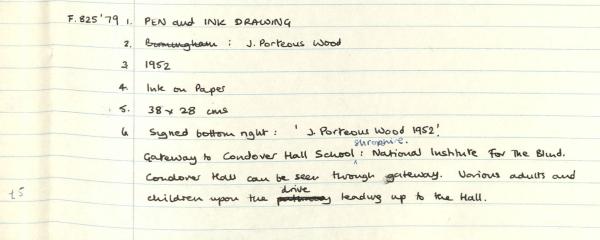 F.825'79 1. PEN and INK DRAWING
2. Birmingham : J. Porteous Wood
3 1952
4. Ink on Paper
5. 38 x 28 cms
6 Signed bottom right : ' J. Porteous Wood 1952'.
Shropshire.
Gateway to Condover Hall School : National Institute For The Blind.
Condover Hall can be seen through gateway. Various adults and
drive
children upon the pathway leading up to the Hall.
£5